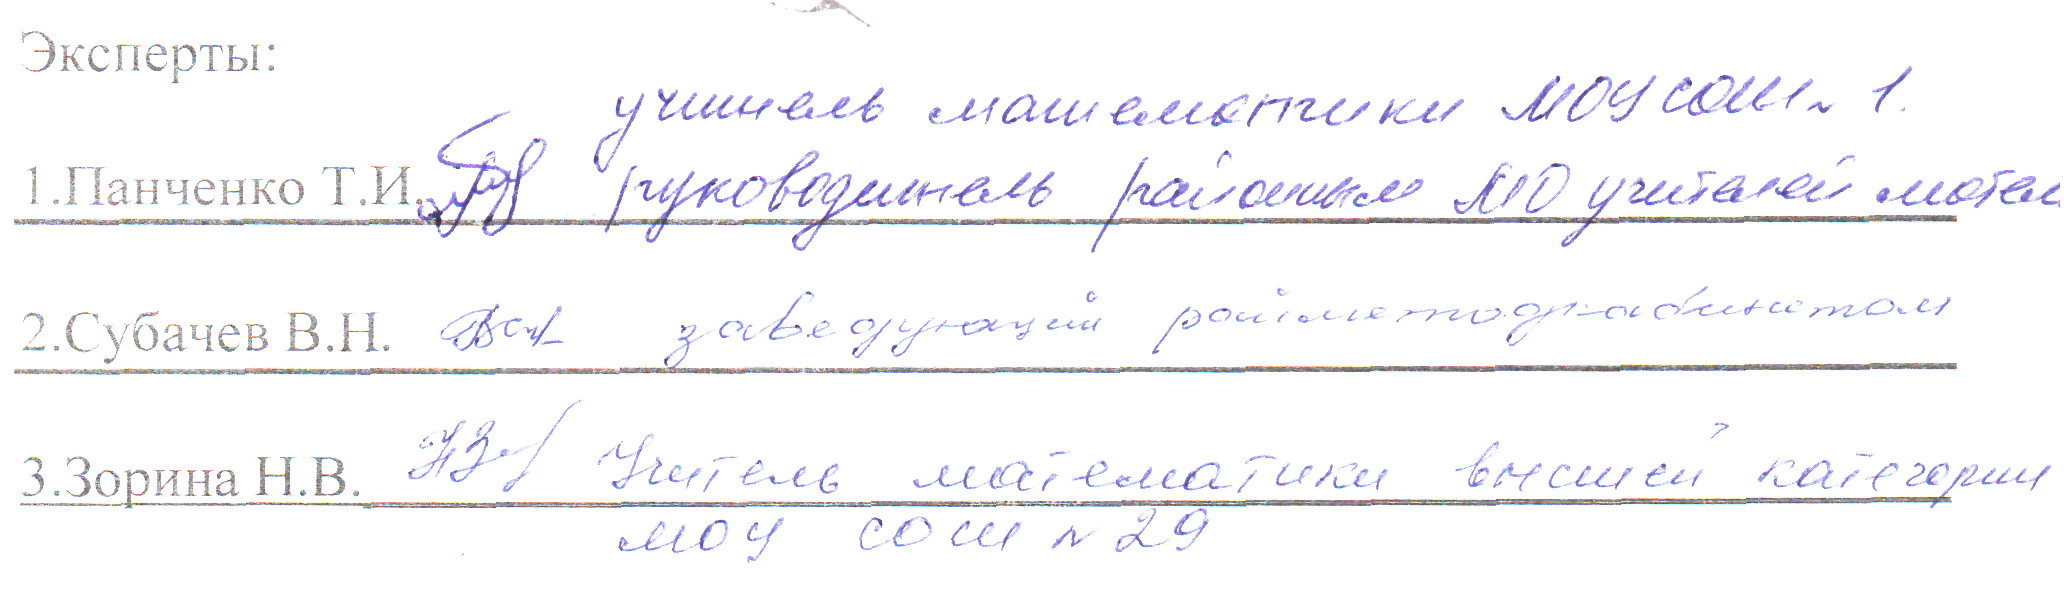 Эксперты:
учитель математики МОУ СОШ № 1.
1.Панченко Т.И. руководитель районным МО учителей матем
2.Субачев В.Н. заведующий райметодкабинетом
3.Зорина Н.В. Учитель математики высшей категории
МОУ СОШ № 29